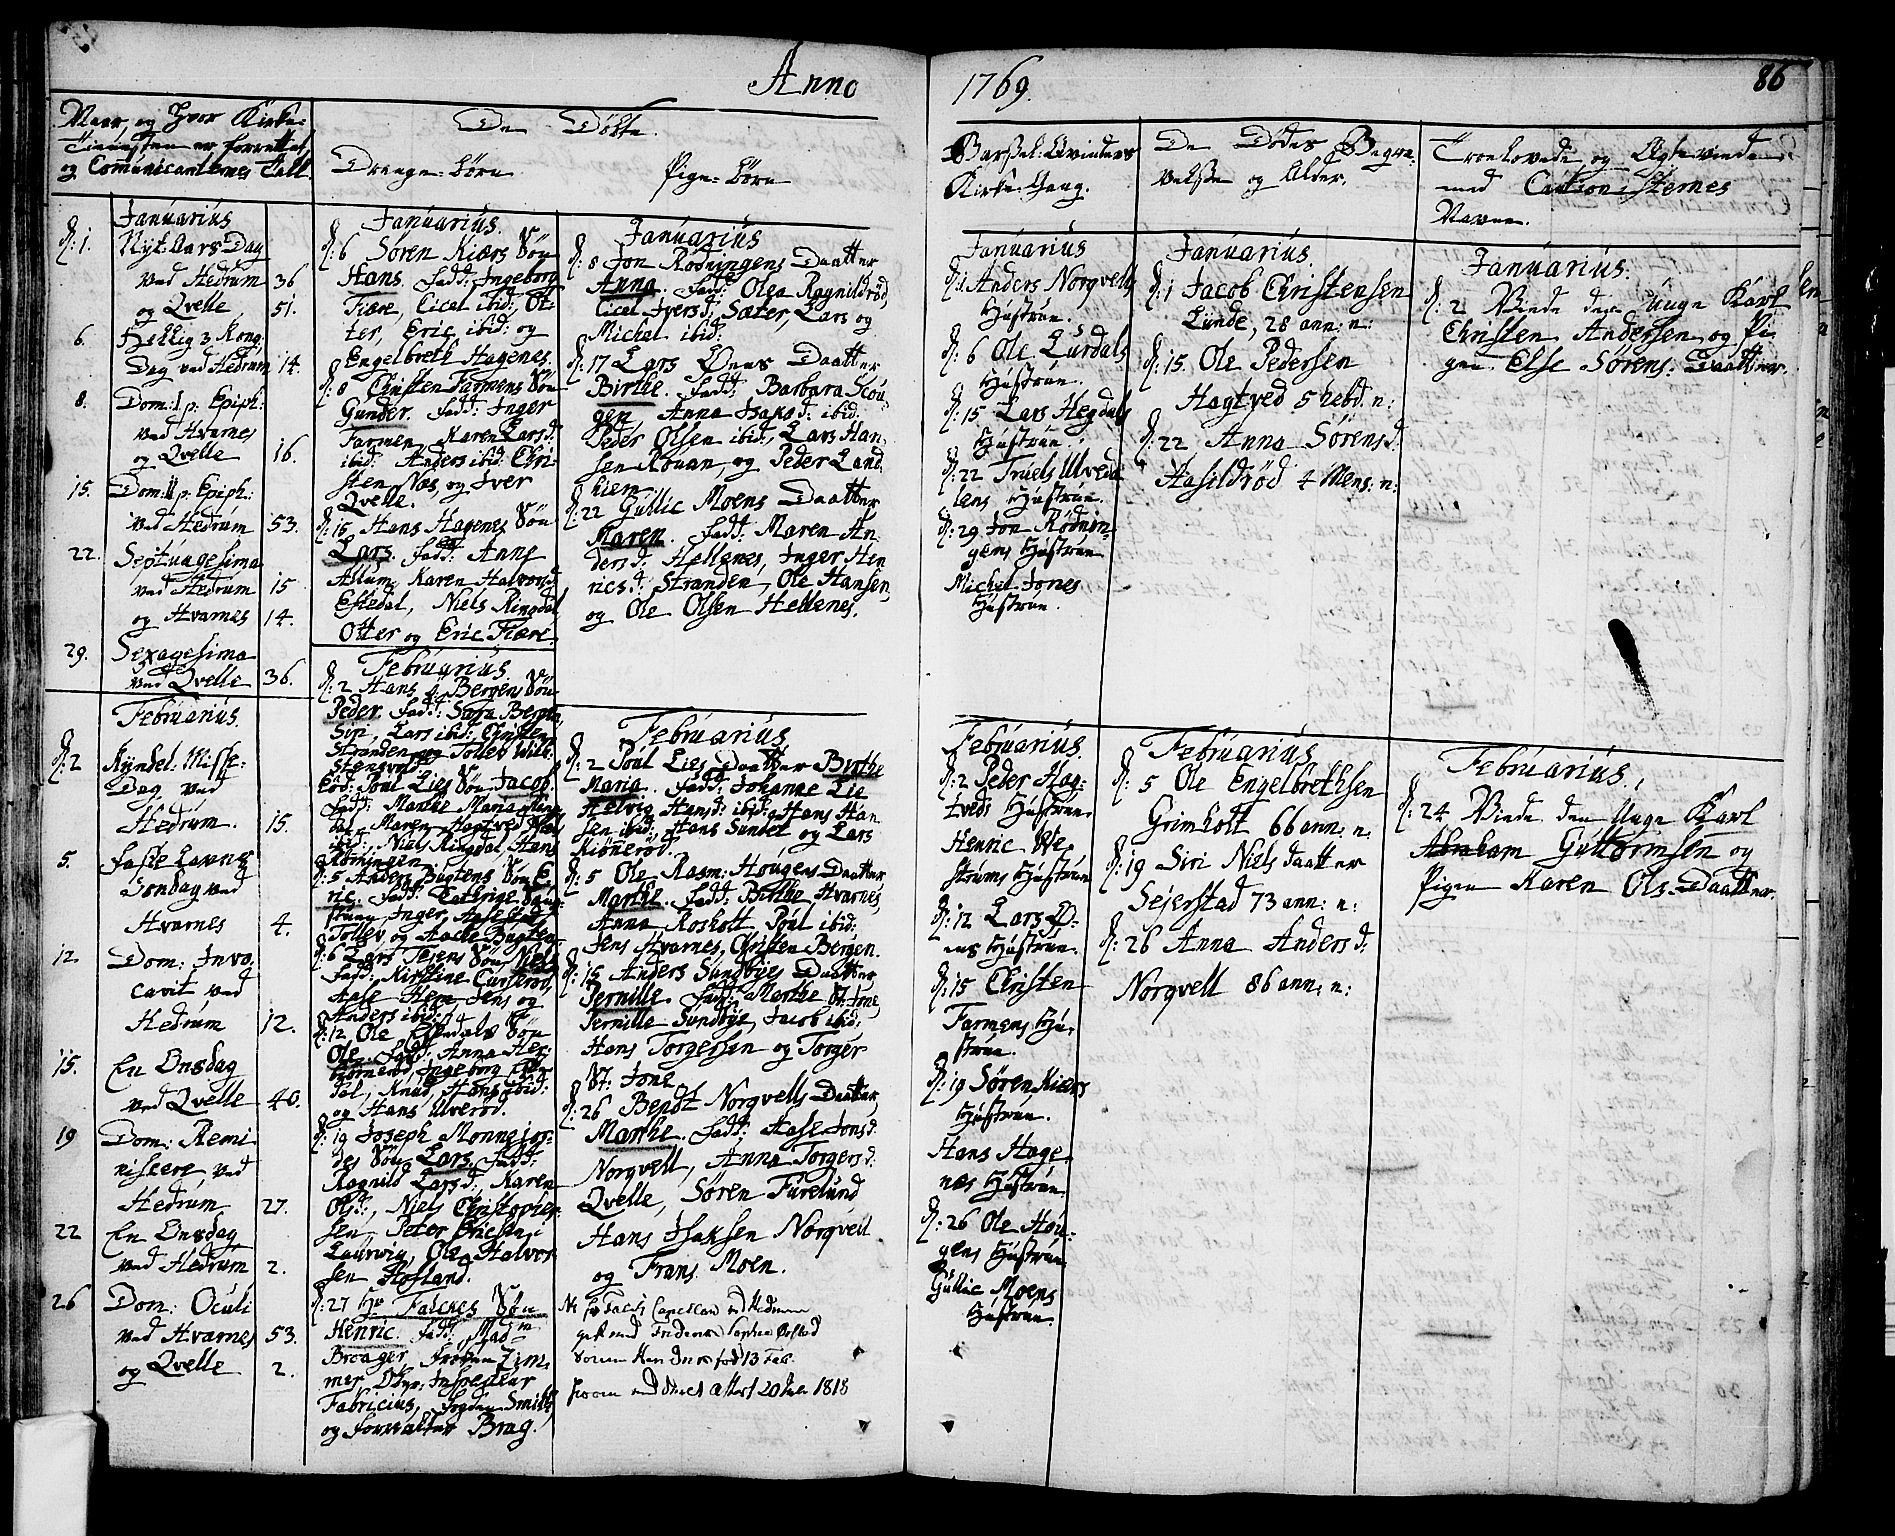 Anno
1769.
86
Naar, og Hvor Kirke-
Tienesten er forrettet,
og Communicanternes Tall.
De Døbte.
Drenge-børn
Pige-børn
Januarius
d: 1. Nyt-Aars-Dag
ved Hedrum 36
og Qvelle 51.
6. Hellig 3 Kong:
Dag ved Hedrum 14.
8. Dom: I p: Epiph:
ved Hvarnes
og Qvelle 16.
15. Dom: II p: Epiph:
ved Hedrum 53.
22. Septuagesima
ved Hedrum 15
og Hvarnes 14.
29. Sexagesima
ved Qvelle 36.
Februarius
d: 2 Kyndel-Misse-
Dag ved
Hedrum. 15.
5. Faste Lavns
Søndag ved
Hvarnes 4.
12. Dom: Invo-
cavit ved
Hedrum 12.
15. En Onsdag
ved Qvelle 40.
19 Dom: Remi-
niscere ved
Hedrum 27.
22 En Onsdag
ved Hedrum 2.
26 Dom: Oculi
ved Hvarnes 53.
og Qvelle 2.
Januarius.
d: 6 Søren Kiærs Søn
Hans. fadd: Ingeborg
Fiære, Cicel ibid: Ot-
ter, Eric ibid: og
Engelbreth Hagenes.
d: 8 Christen Farmens Søn
Gunder. fadd: Inger
Farmen, Karen Larsd:
ibid: Anders ibid: Chri-
sten Næs og Iver
Qvelle.
d: 15 Hans Hagenes Søn
Lars. fadd: Anne
Allum, Karen Halvorsd:
Estedal, Niels Ringdal
Otter og Eric Fiære.
Februarius.
d: 2 Hans Bergens Søn
Peder. fadd: Bergen,
Siri, Lars ibid: Christen
Stranden og Tollev
Eod: Poul Lies Søn Jacob.
fadd: Marthe Maria
Maren Hagtved
Niels Ringdal, Hans
d: 5 Anders Bugtens Søn E-
ric. fadd:
Inger
Tollev og Aasle Bugten.
d: 6 Lars Tejens Søn Niels
fadd: Kirstine
Aasle Hem Jens og
Anders ibid:
d: 12 Ole Søn
Ole. fadd: Anna Her-
Ingeborg
dal, Knud, Hans ibid:
og Hans Ulverød.
d: 19 Joseph
des Søn Lars. fadd:
Ragnild Larsd: Karen
Olsd:, Niels Christopher-
sen, Peter Ericsen i
Laurvig, Ole Halvor-
sen Hofland.
d: 27 Hr Falches Søn
Henric. fadd: Madm
Broager, Frøken Zim-
mer, Inspecteur
Fabricius, fogden Smith
og forvalter Brag.
Januarius
d: 8 Jon Rødningens Daatter
Anna. fadd: Olea Ragnildrød,
Cicel Iversd: Sæter, Lars og
Michel ibid:
d: 17 Lars Øens Daatter
Birthe. fadd: Barbara Skou-
gen Anna Isaksd: ibid:
Peder Olsen ibid:, Lars Han-
sen Rouan, og Peder Land-
hiem.
d: 22 Gullic Moens Daatter
Maren. fadd: Maren An-
dersd: Hellenes, Inger Hen-
ricsd: Stranden, Ole Hansen
og Ole Olsen Hellenes.
Februarius
d: 2 Poul Lies Daatter Birthe
Maria. fadd: Johanne Lie
Helvig Hansd: ibid: Hans Han-
sen ibid: Hans Sundet og Lars
Kiønerød.
d: 5 Ole Rasm: Hougens Daatter
Marthe. fadd: Birthe Hvarnes,
Anna Rosholt Poul ibid:
Jens Hvarnes, Christen Bergen.
d: 15 Anders Sundbyes Daatter
Pernille. fadd: Marthe St: Jone
Pernille Sundbye, Jacob ibid:
Hans Torgersen og Torger
St: Jone
d: 26 Bendt Norqvells Daatter
Marthe. fadd: Aase Jonsd:
Norqvell, Anna Torgersd:
Qvelle, Søren Furelund
Hans Isaksen Norqvell
og Frans Moen.
Capellan ved Hedrum
gift med Friderica Sophia Ørsted
Sønnen Hendrik fød 13 Feb.
1818
Barsel-Qvinders
Kirke-Gang.
De Dødes Begra-
velse og Alder.
Troelovede og Ægteviede
med Cautionisternes
Navne.
Januarius
d: 1 Anders Norqvells
Hustrue.
d: 6 Ole Lurdals
Hustrue.
d: 15 Lars Hegdals
Hustrue.
d: 22 Truels Ulveda-
lens Hustrue.
d: 29 Jon Rødnin-
gens Hustrue
Michel Jones
Hustrue.
Februarius.
d: 2 Peder Hag-
tveds Hustrue.
Henric We-
strums Hustrue
d: 12 Lars Ø-
ens Hustrue.
d: 15 Christen
Farmens Hu-
strue.
d: 19 Søren Kiærs
Hustrue.
Hans Hage-
næs Hustrue.
d: 26 Ole Hou-
gens Hustrue
Gullic Moens
Hustrue
Januarius.
d: 1 Jacob Christensen
Lunde, 28 ann: n:
d: 15. Ole Pedersen
Hagtved 5 hebd: n:
d: 22 Anna Sørensd:
Haseldrød 4 Mens: n:
Februarius
d: 5 Ole Engelbrethsen
Grimholt 66 ann: n:
d: 19 Siri Niels daatter
Sejerstad 73 ann: n:
d: 26 Anna Andersd:
Norqvell 86 ann: n:
Januarius.
d: 2 Viede den Unge Karl
Christen Andersen og Pi-
gen Else Sørens-Daatter.
Februarius.
d: 24 Viede den Unge Karl
Abraham Guttormsen og
Pigen Karen Ols-Daatter.